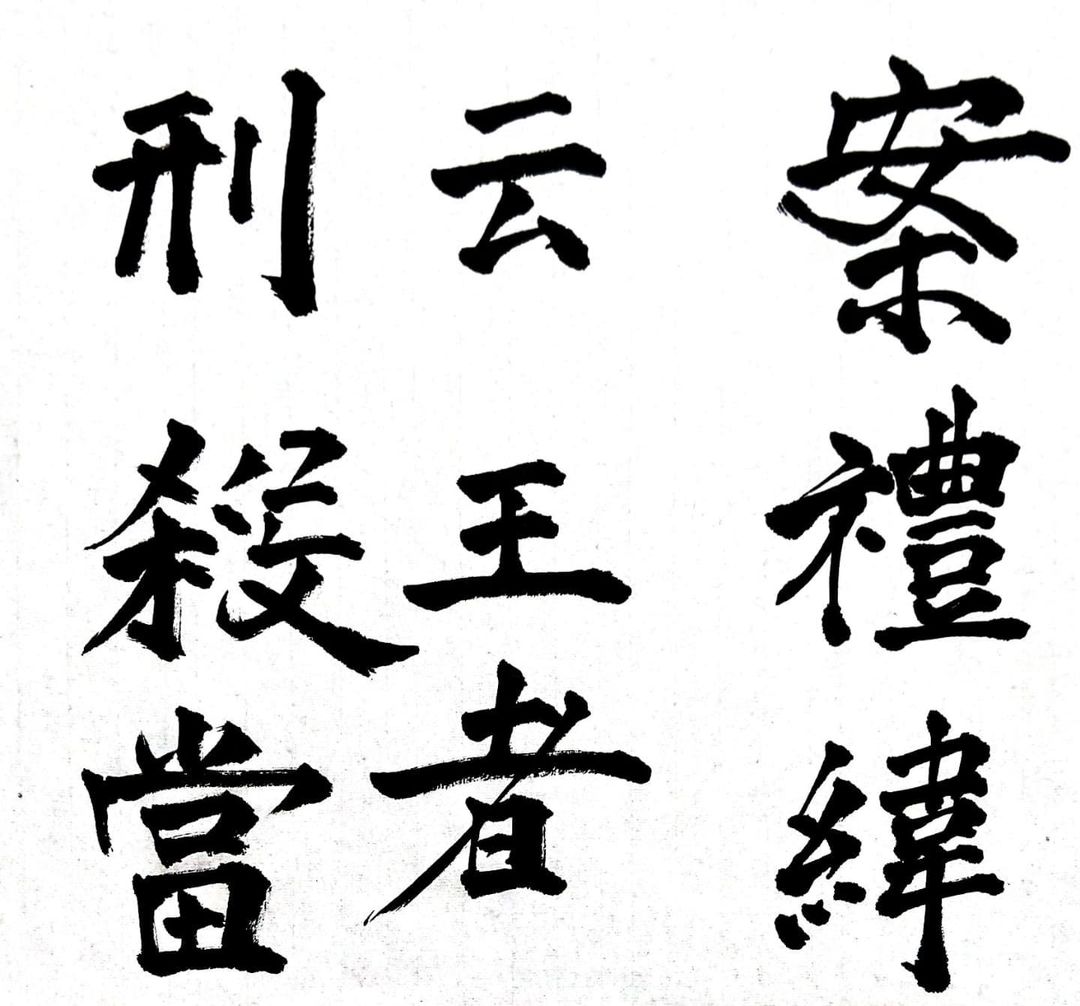 案禮緯
云王者
刑殺當